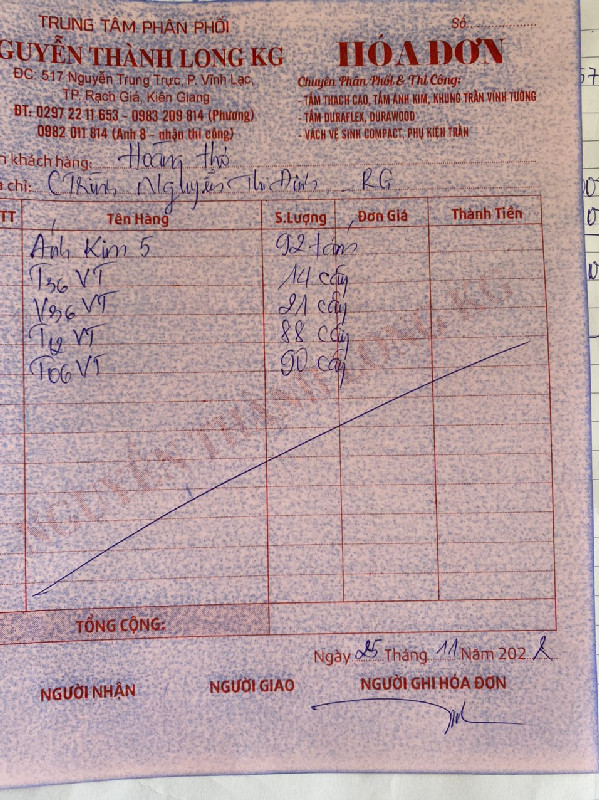 TRUNG TÂM PHÂN PHỐI
GUYỄN THÀNH LONG KG
ĐC: 517 Nguyễn Trung Trực, P. Vĩnh Lạc,
TP. Rạch Giá, Kiên Giang
ĐT: 0297 22 11 653 - 0983 209 814 (Phương)
0982 011 814 (Anh 8 - nhận thi công)
Số:
HÓA ĐƠN
Chuyên Phân Phối & Thi Công:
- TẤM THẠCH CAO, TẤM ÁNH KIM, KHUNG TRẦN VĨNH TƯỜNG
- TẤM DURAFLEX, DURAWOOD
- VÁCH VỆ SINH COMPACT, PHỤ KIỆN TRẦN
n khách hàng: Hoàng thơ
a chỉ: CTrình Nguyễn Thị Định, RG
TT Tên Hàng S.Lượng Đơn Giá Thành Tiền
Ánh Kim 5 92 tấm
T36 VT 14 cây
V36 VT 21 cây
T12 VT 88 cây
T06 VT 90 cây
NGUYỄN THÀNH LONG KG
TỔNG CỘNG:
Ngày 25 Tháng 11 Năm 2022
NGƯỜI NHẬN NGƯỜI GIAO NGƯỜI GHI HÓA ĐƠN